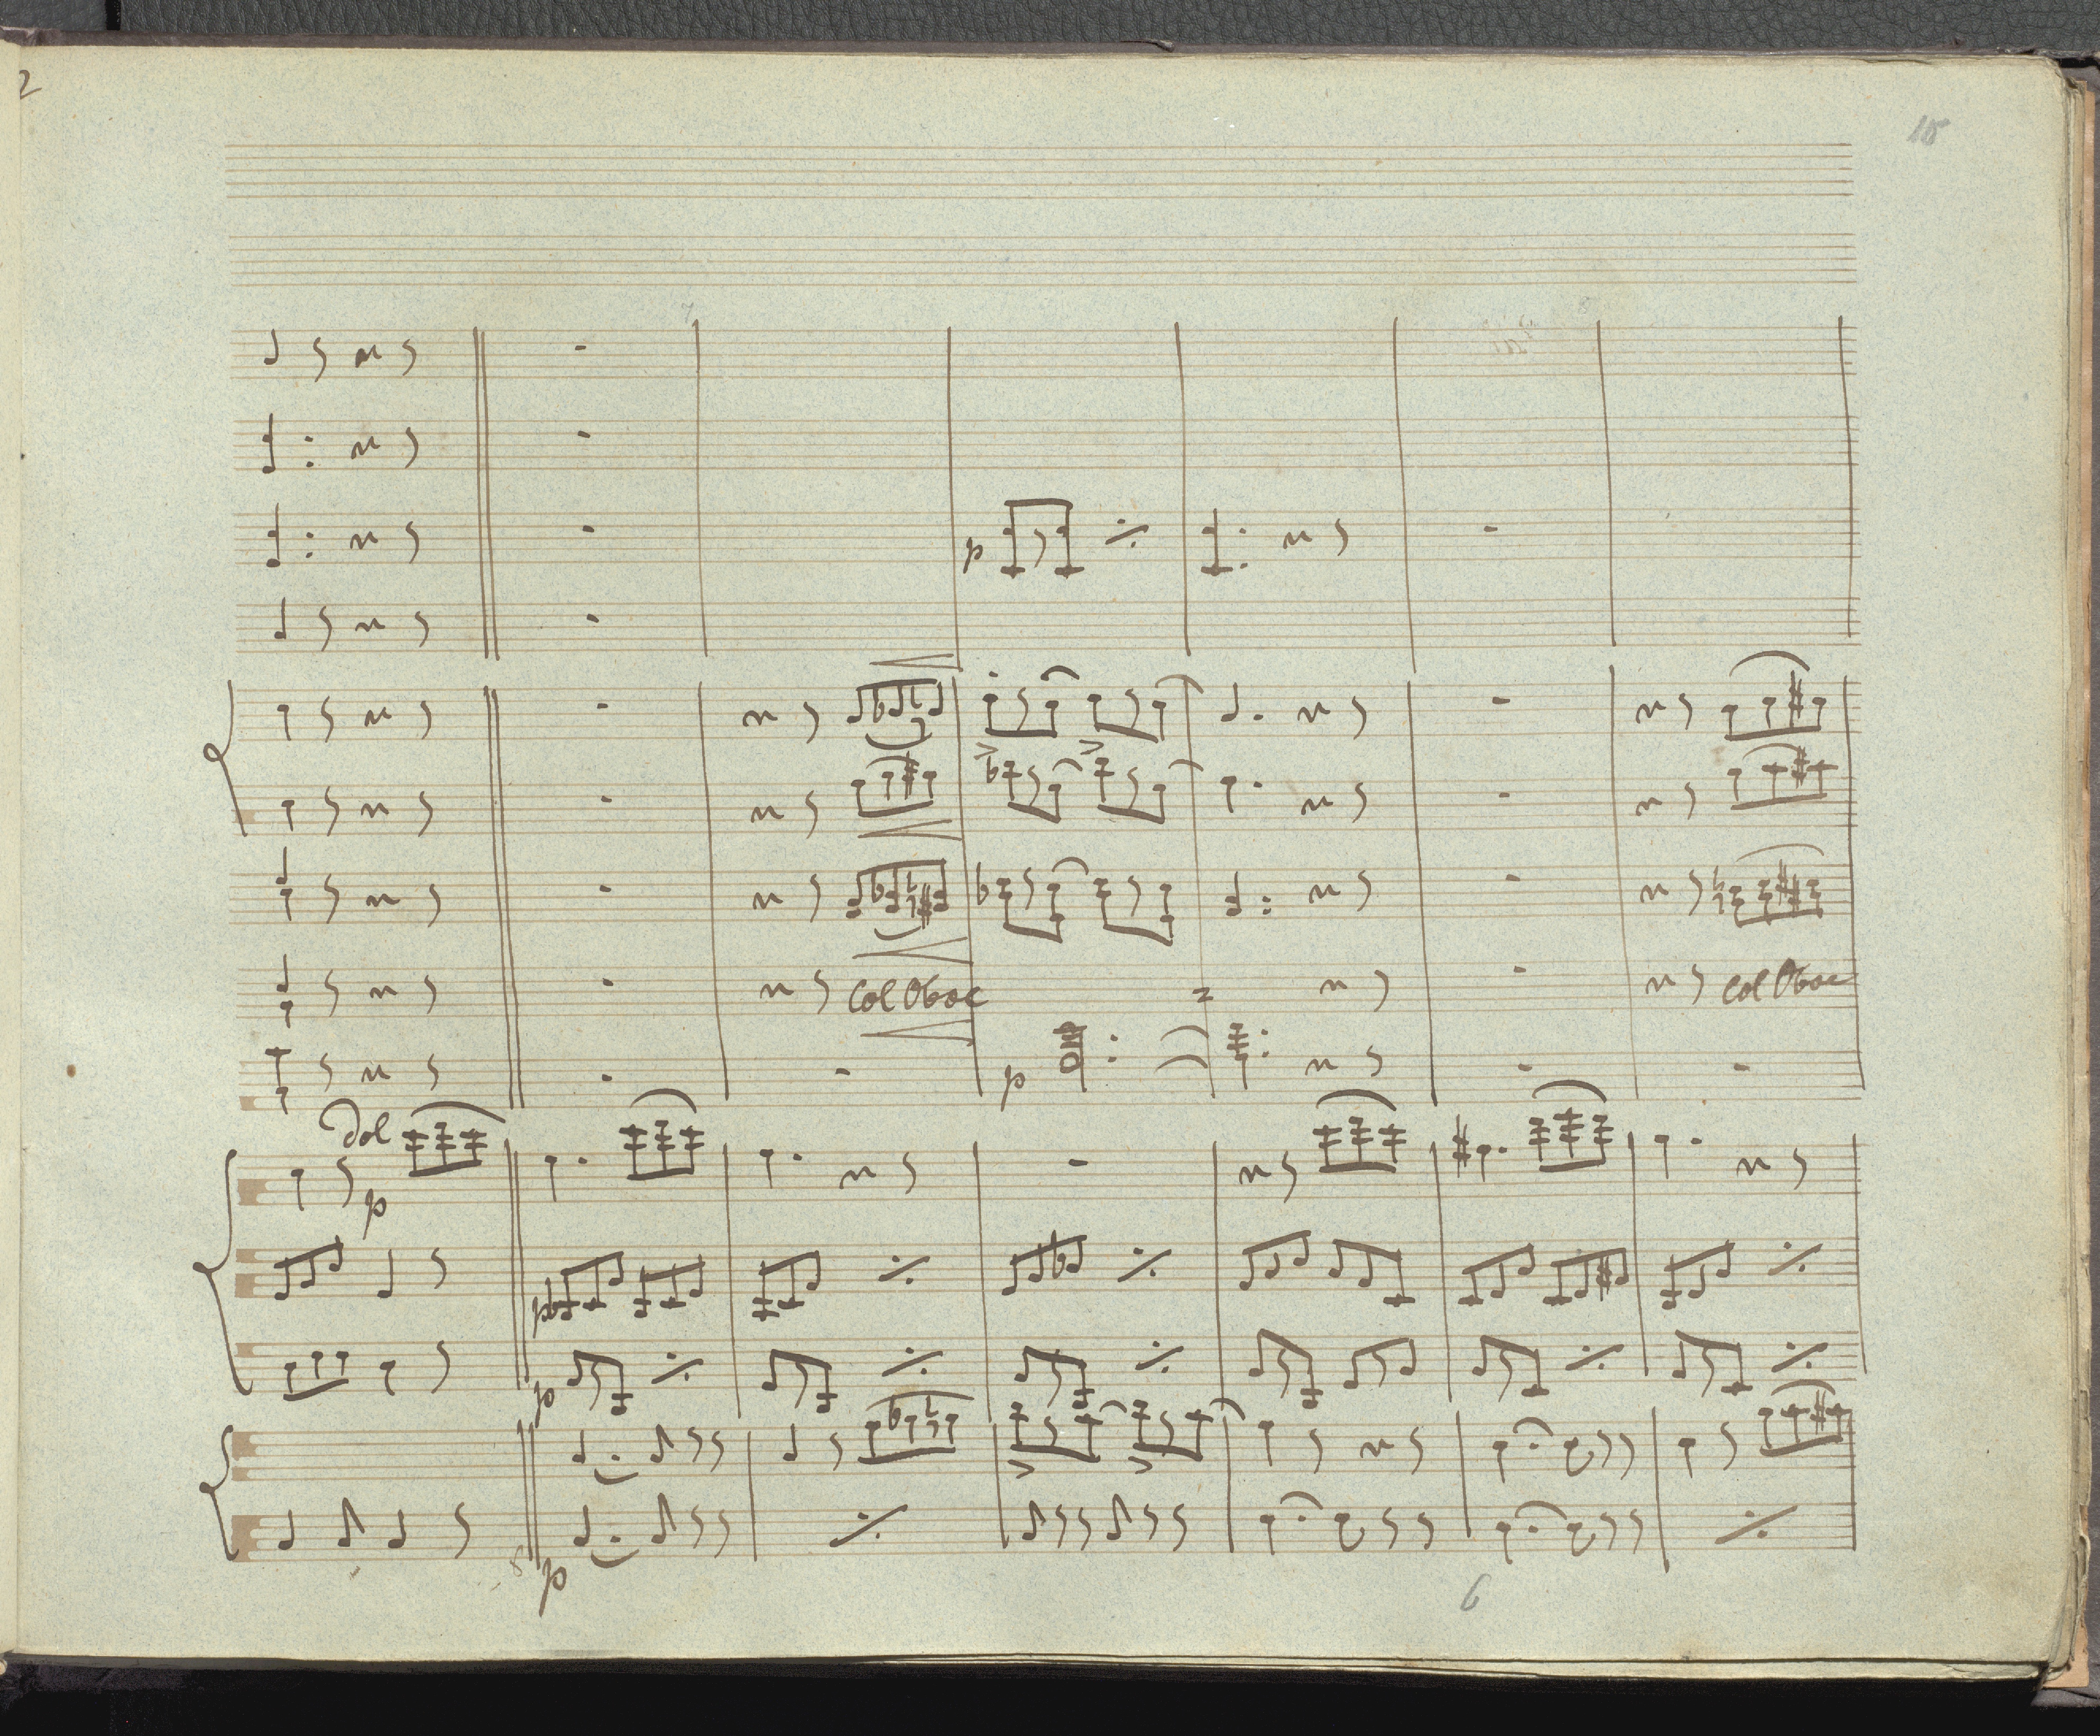 2
18
p
col Oboe
col Oboe
p
dol
p
p
p
p
6